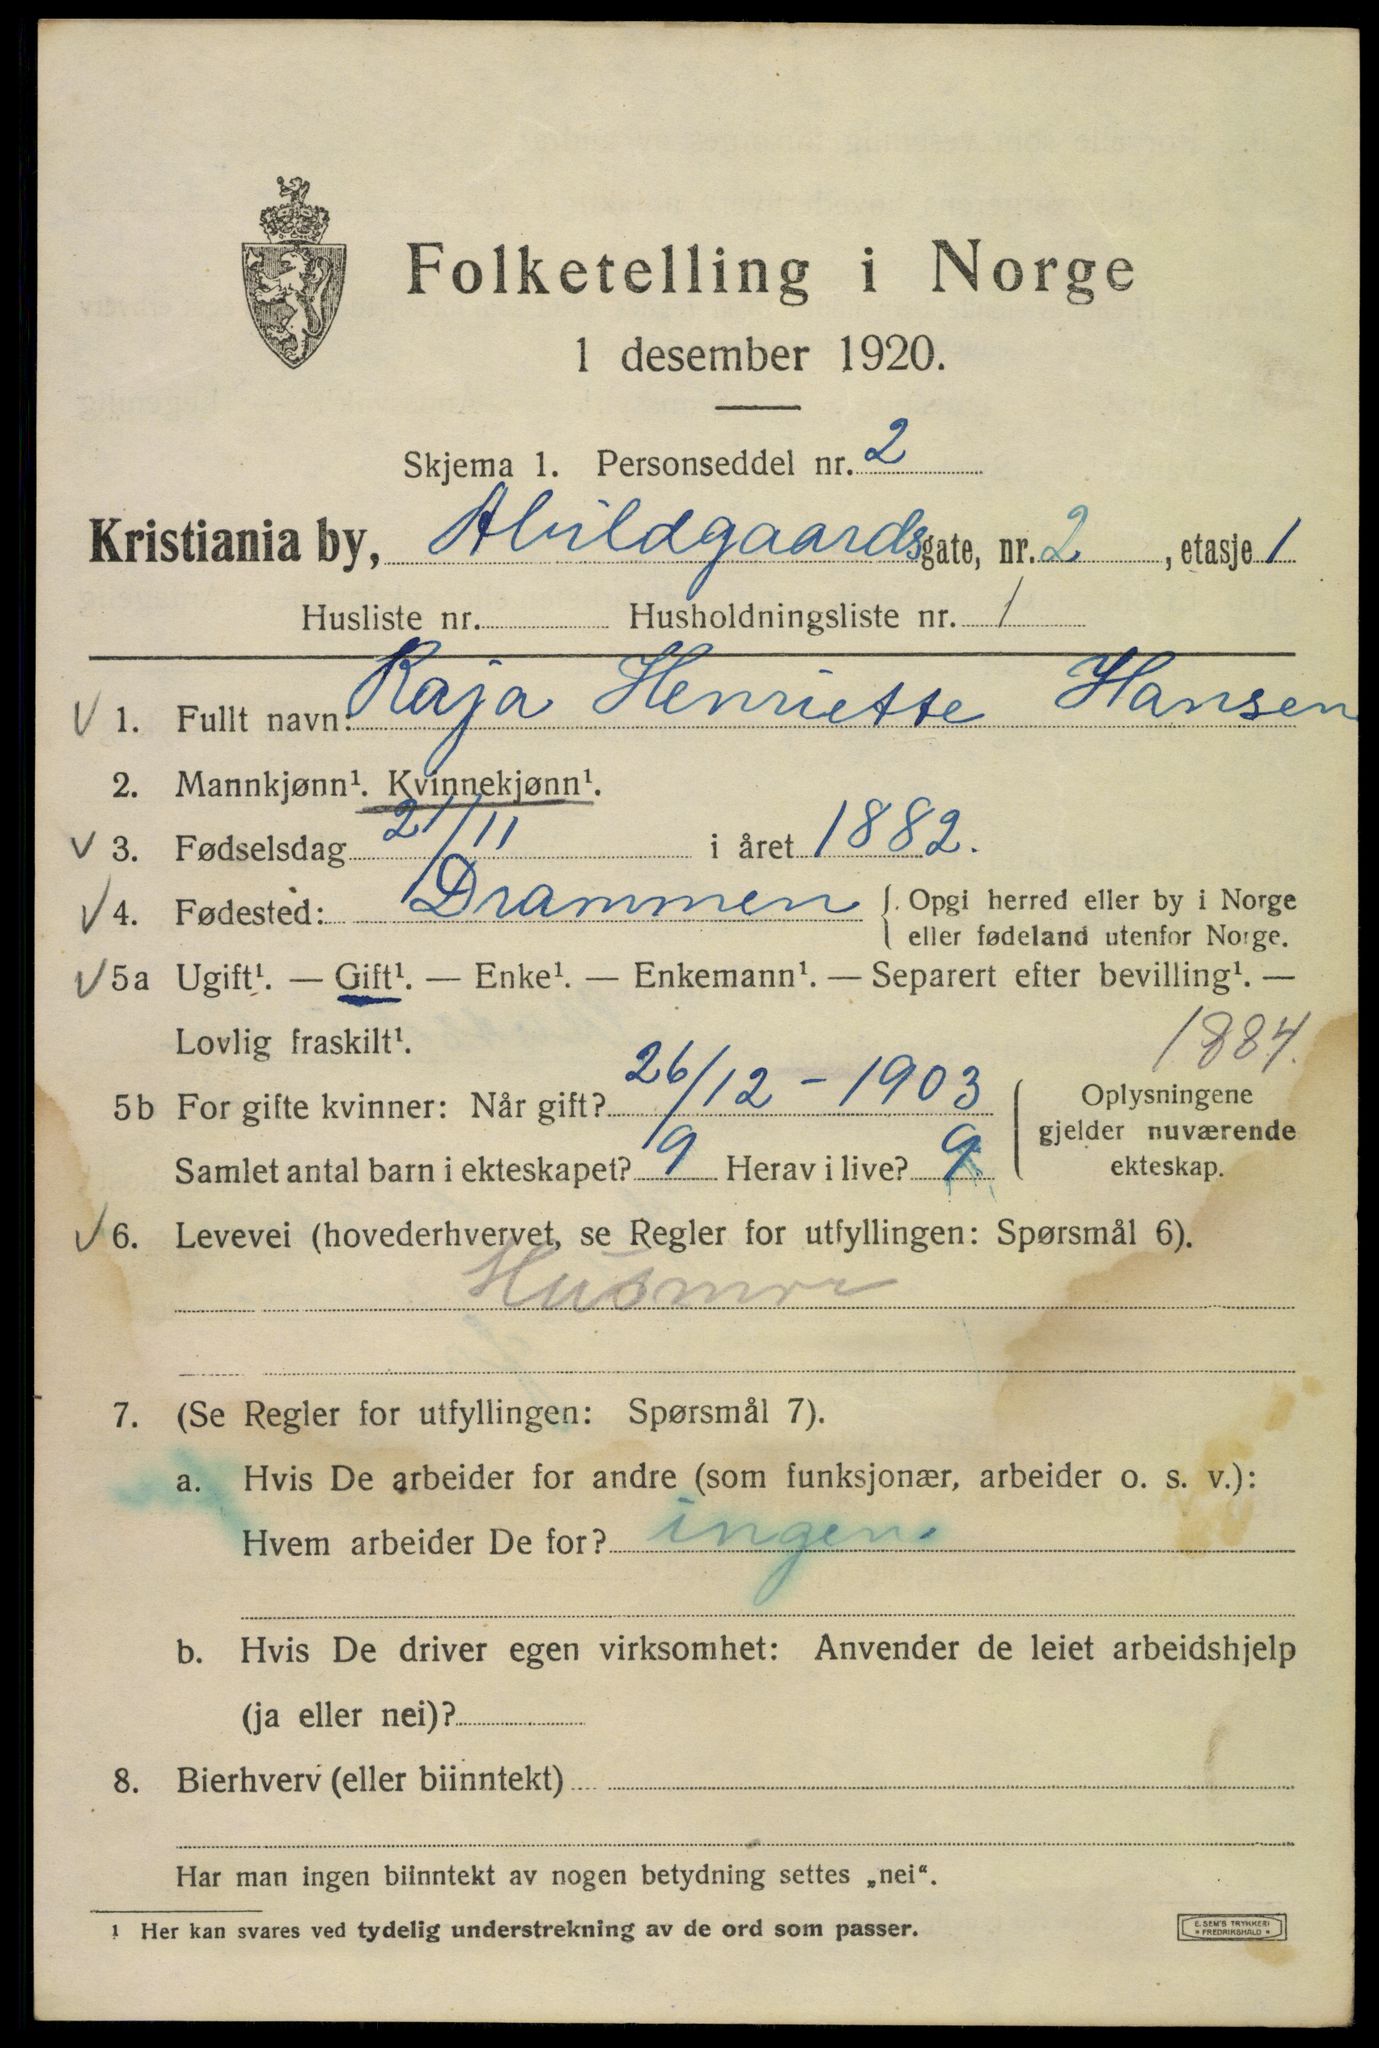 Folketelling i Norge
1 desember 1920.
Skjema 1. Personseddel nr. 2
Kristiania by, Abildgaardsgate, nr. 2, etasje 1
Husliste nr. Husholdningsliste nr. 1
1. Fullt navn: Kaja Henriette Hansen
2. Mannkjønn¹. Kvinnekjønn¹.
3. Fødselsdag 21/11 i året 1882.
4. Fødested: Drammen { Opgi herred eller by i Norge
eller fødeland utenfor Norge.
5a Ugift¹. — Gift¹. — Enke¹. — Enkemann¹. — Separert efter bevilling¹. —
Lovlig fraskilt¹. 1884.
5b For gifte kvinner: Når gift? 26/12 - 1903
Samlet antal barn i ekteskapet? 9 Herav i live? 9
Oplysningene
gjelder nuværende
ekteskap.
6. Levevei (hovederhvervet, se Regler for utfyllingen: Spørsmål 6).
Husmor
7. (Se Regler for utfyllingen: Spørsmål 7).
a. Hvis De arbeider for andre (som funksjonær, arbeider o. s. v.):
Hvem arbeider De for? ingen
b. Hvis De driver egen virksomhet: Anvender de leiet arbeidshjelp
(ja eller nei)?
8. Bierhverv (eller biinntekt)
Har man ingen biinntekt av nogen betydning settes „nei“.
¹ Her kan svares ved tydelig understrekning av de ord som passer.
E. SEM'S TRYKKERI
* FREDRIKSHALD *